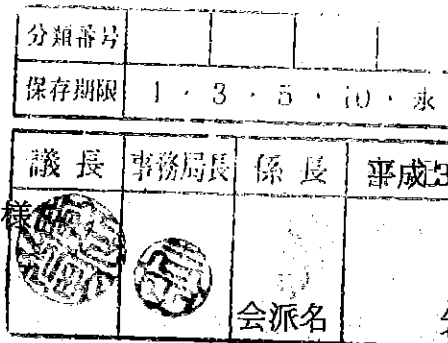 分類番号
保存期限 1・3・5・10・永
議長 事務局長 係長 平成3
様
会派名